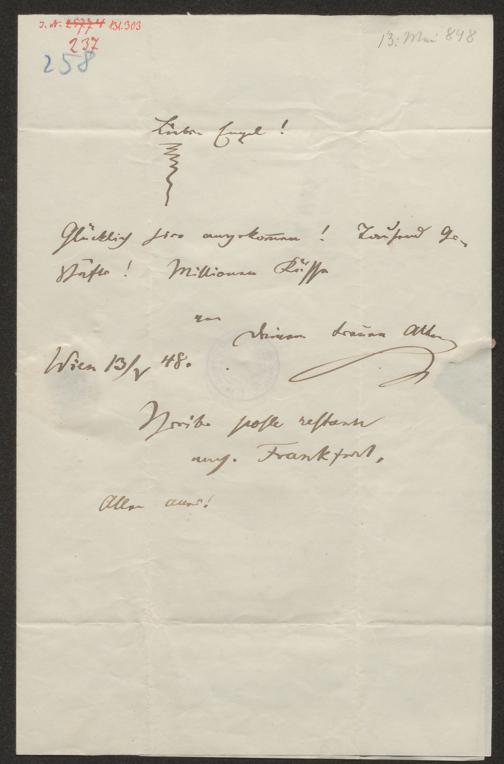 I. N. 25774 Bl. 303
237
258
13. Mai 848
Lieber Engel!
Glücklich hier angekommen! Tausend Ge-
schäfte! Millionen Küsse
von
Deinem treuen Alten
Wien 13/5 48.
Schreibe poste restante
nach Frankfurt.
Alles